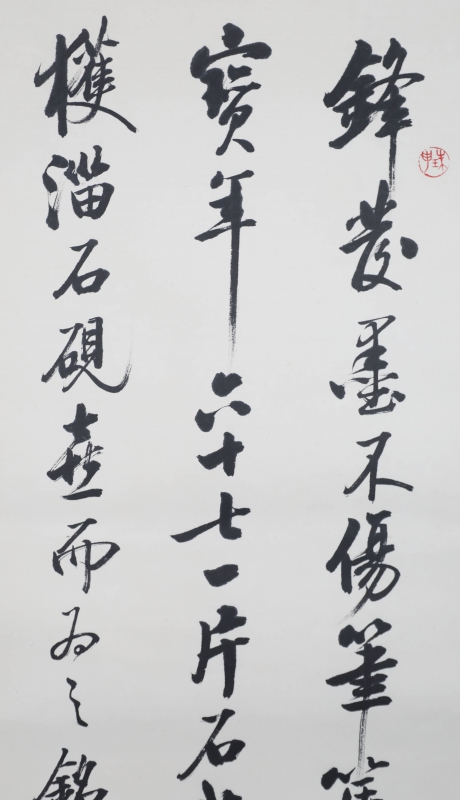 鋒發墨不傷筆
寶年六十七一片石
獲淄石硯喜而為之銘